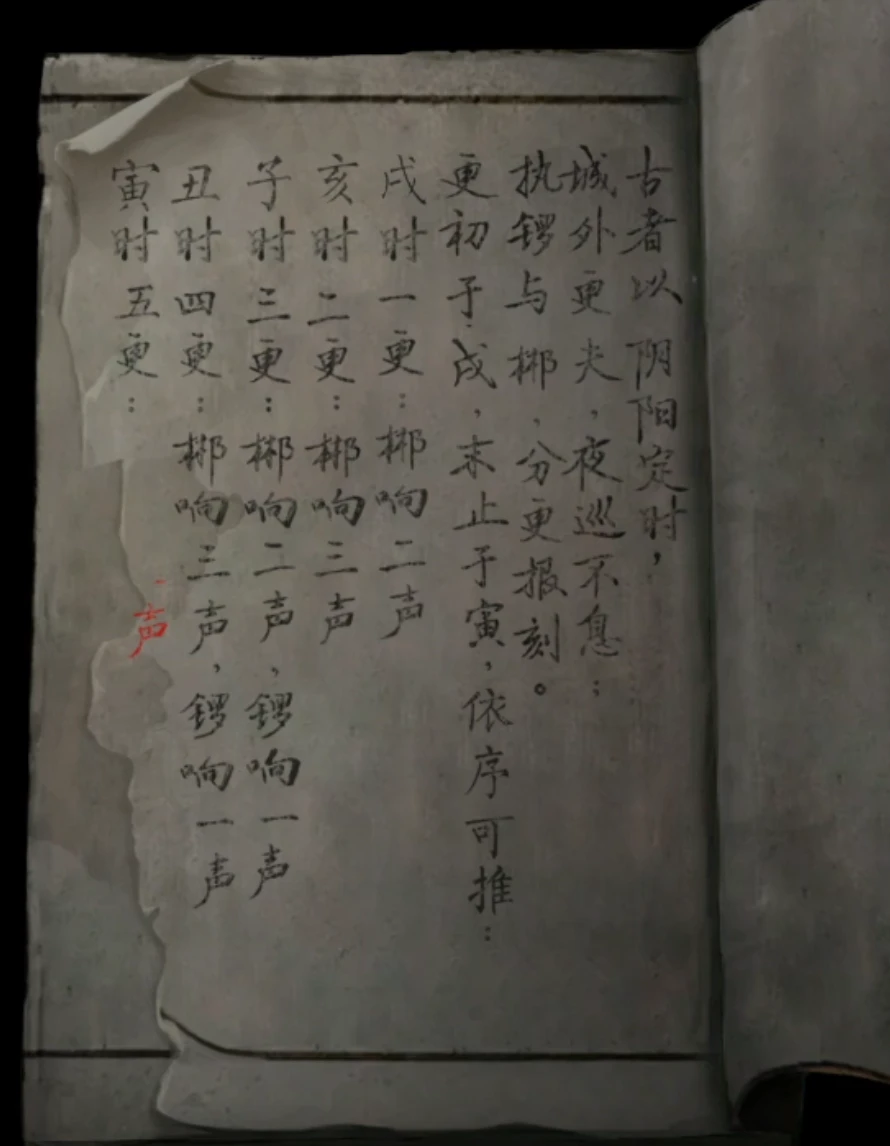 古者以阴阳定时，
城外更夫，夜巡不息；
执锣与梆，分更报刻。
更初于戌，末止于寅，依序可推：
戌时一更：梆响二声
亥时二更：梆响三声
子时三更：梆响二声，锣响一声
丑时四更：梆响三声，锣响一声
寅时五更：
声